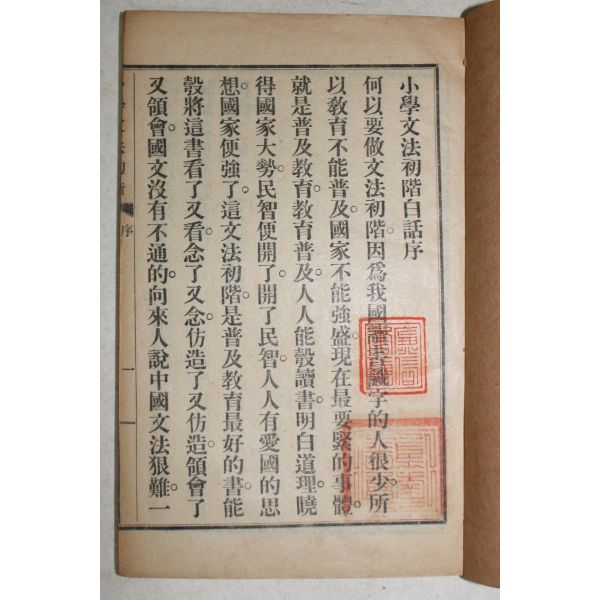 小學文法初階白話序
何以要做文法初階。因爲我國讀書識字的人很少。所
以敎育不能普及。國家不能強盛。現在最要緊的事體。
就是普及敎育。敎育普及。人人能彀讀書。明白道理。曉
得國家大勢。民智便開了。開了民智。人人有愛國的思
想。國家便強了。這文法初階。是普及敎育最好的書。能
彀將這書看了又看。念了又念。仿造了又仿造。領會了
又領會。國文沒有不通的。向來人說中國文法狠難。一
序
一